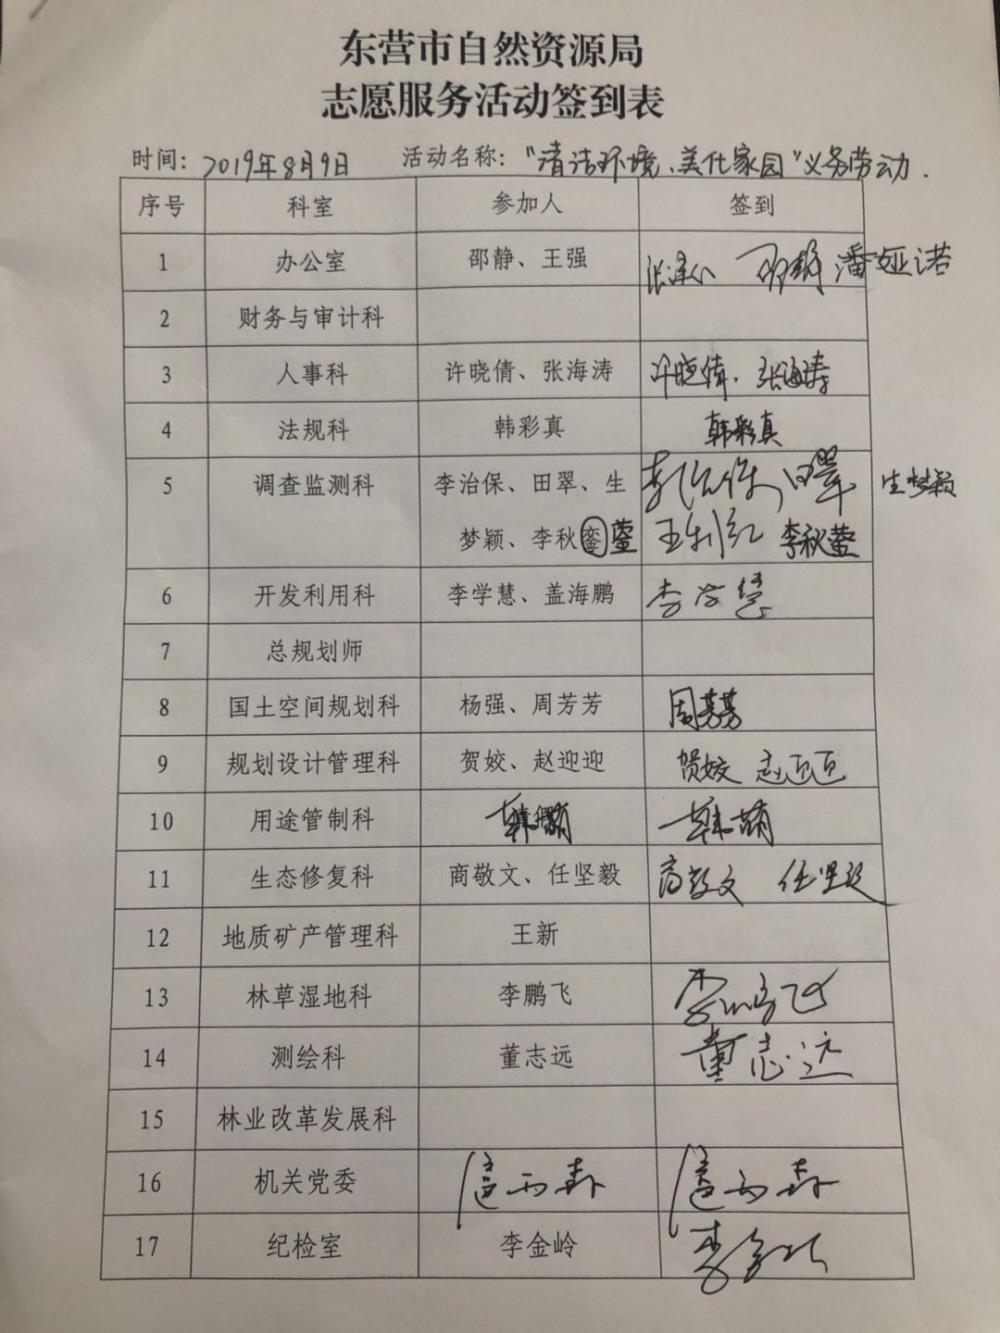 东营市自然资源局
志愿服务活动签到表
时间：2019年8月9日 活动名称："清洁环境、美化家园"义务劳动.
序号 科室 参加人 签到
1 办公室 邵静、王强 邵静 潘娅诺
2 财务与审计科
3 人事科 许晓倩、张海涛 许晓倩、张海涛
4 法规科 韩彩真 韩彩真
5 调查监测科 李治保、田翠、生 李治保 田翠 生梦颖
梦颖、李秋蓥 王利红 李秋蓥
6 开发利用科 李学慧、盖海鹏 李学慧
7 总规划师
8 国土空间规划科 杨强、周芳芳 周芳芳
9 规划设计管理科 贺姣、赵迎迎 贺姣 赵迎迎
10 用途管制科 韩萌
11 生态修复科 商敬文、任坚毅 商敬文 任坚毅
12 地质矿产管理科 王新
13 林草湿地科 李鹏飞 李鹏飞
14 测绘科 董志远 董志远
15 林业改革发展科
16 机关党委
17 纪检室 李金岭 李金岭